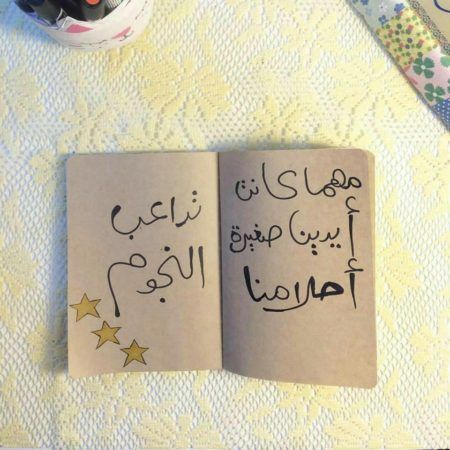 مهما كانت
أيدينا صغيرة
أحلامنا
تداعب
النجوم